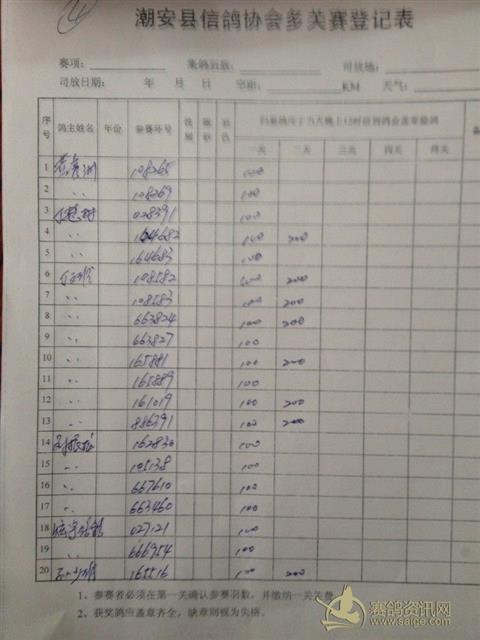 ④
潮安县信鸽协会多关赛登记表
赛项： 集鸽羽数： 司放地：
司放日期： 年 月 日 空距： KM 天气：
序号 鸽主姓名 年份 参赛环号 性别 眼砂 羽色 归巢鸽应于当天晚上12时前到鸽会盖章验鸽 备
一关 二关 三关 四关 终关
1 108265 100
2 〃 108269 100
3 028391 100
4 〃 164682 100 200
5 〃 164683 100
6 108582 100 200
7 〃 108583 100 200
8 〃 663824 100 200
9 〃 663827 100
10 〃 165881 100 200
11 〃 165889 100
12 〃 161019 100 200
13 〃 886391 100 200
14 162830 100
15 〃 105138 100
16 〃 667610 100
17 〃 663460 100
18 027121 100
19 〃 666954 100
20 165516 100 200
1、参赛者必须在第一关确认参赛羽数，并缴纳一关关费
2、获奖鸽应盖章齐全，缺章则视为失格。
赛鸽资讯网
www.saige.com